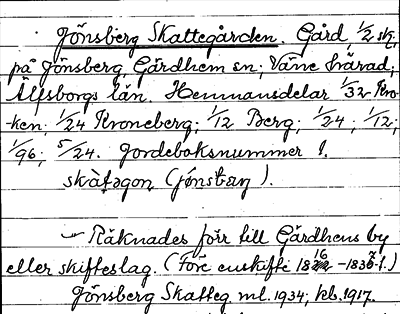 Jönsberg Skattegården. Gård, 1/2 sk;
på Jönsberg, Gärdhem sn; Väne härad;
Älfsborgs län. Hemmansdelar 1/32 Kro-
-ken; 1/24 Kroneberg; 1/12 Berg; 1/24; 1/12;
1/96; 5/24. Jordeboksnummer 1.
(jönsbærj).
Räknades förr till Gärdhems by
eller skifteslag. (Före enskifte 18
Jönsberg Skatteg. ml. 1934; kb. 1917.